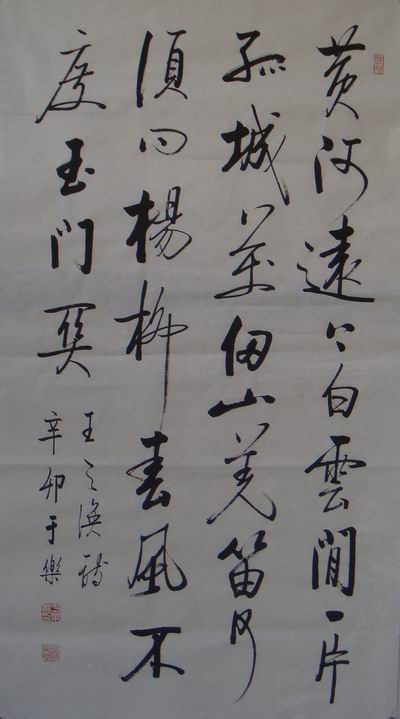 黄河遠上白雲間一片
孤城萬仞山羌笛何
須問楊柳春風不
度玉門関
王之渙詩
辛卯于樂